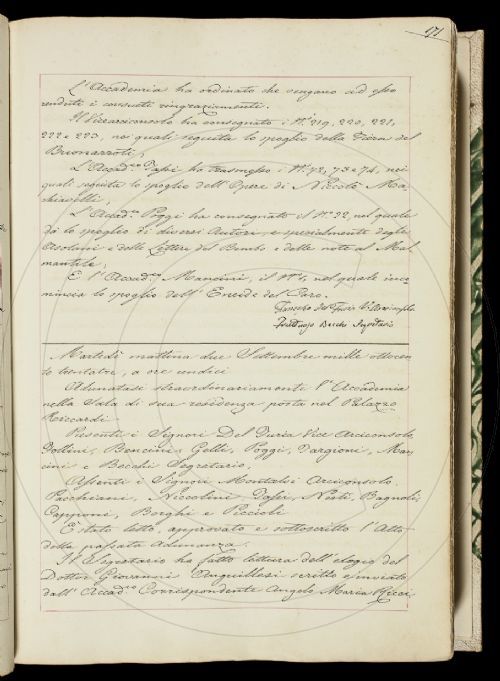 171
L'Accademia ha ordinato che vengano ad esso
renduti i consueti ringraziamenti.
Il Vicearciconsolo ha consegnato i Nⁱ 219, 220, 221,
222 e 223, nei quali seguita lo spoglio della Fiera del
Buonarroti;
L'Accadᶜᵒ Tassi ha trasmesso i Nⁱ 72, 73 e 74, nei
quali seguita lo spoglio dell'Opere di Niccolò Ma-
chiavelli;
L'Accadᶜᵒ Poggi ha consegnato il Nº 32, nel quale
dà lo spoglio di diversi Autori, e spezialmente degli
Asolani e delle Lettere del Bembo e delle note al Mal-
mantile;
E l'Accadᶜᵒ Manzini, il Nº 1, nel quale inco-
mincia lo spoglio dell'Eneide del Caro.
Francesco del Furia Vᵉ Arciconsolo
Fruttuoso Becchi Segretario
Martedì mattina due Settembre mille ottocen-
to trentatre, a ore undici
Adunatasi straordinariamente l'Accademia
nella Sala di sua residenza posta nel Palazzo
Riccardi
Presenti i Signori Del Furia Vice Arciconsolo,
Follini, Bencini, Gelli, Poggi, Targioni, Man-
zini e Becchi Segretario,
Assenti i Signori Montalvi Arciconsolo,
Pacchiani, Niccolini, Tassi, Nesti, Bagnoli,
Capponi, Borghi e Piccioli
È stato letto, approvato e sottoscritto l'Atto
della passata adunanza.
Il Segretario ha fatto lettura dell'elogio del
Dottor Giovanni Anguillesi scritto e inviato
dall'Accadᶜᵒ Corrispondente Angelo Maria Ricci,